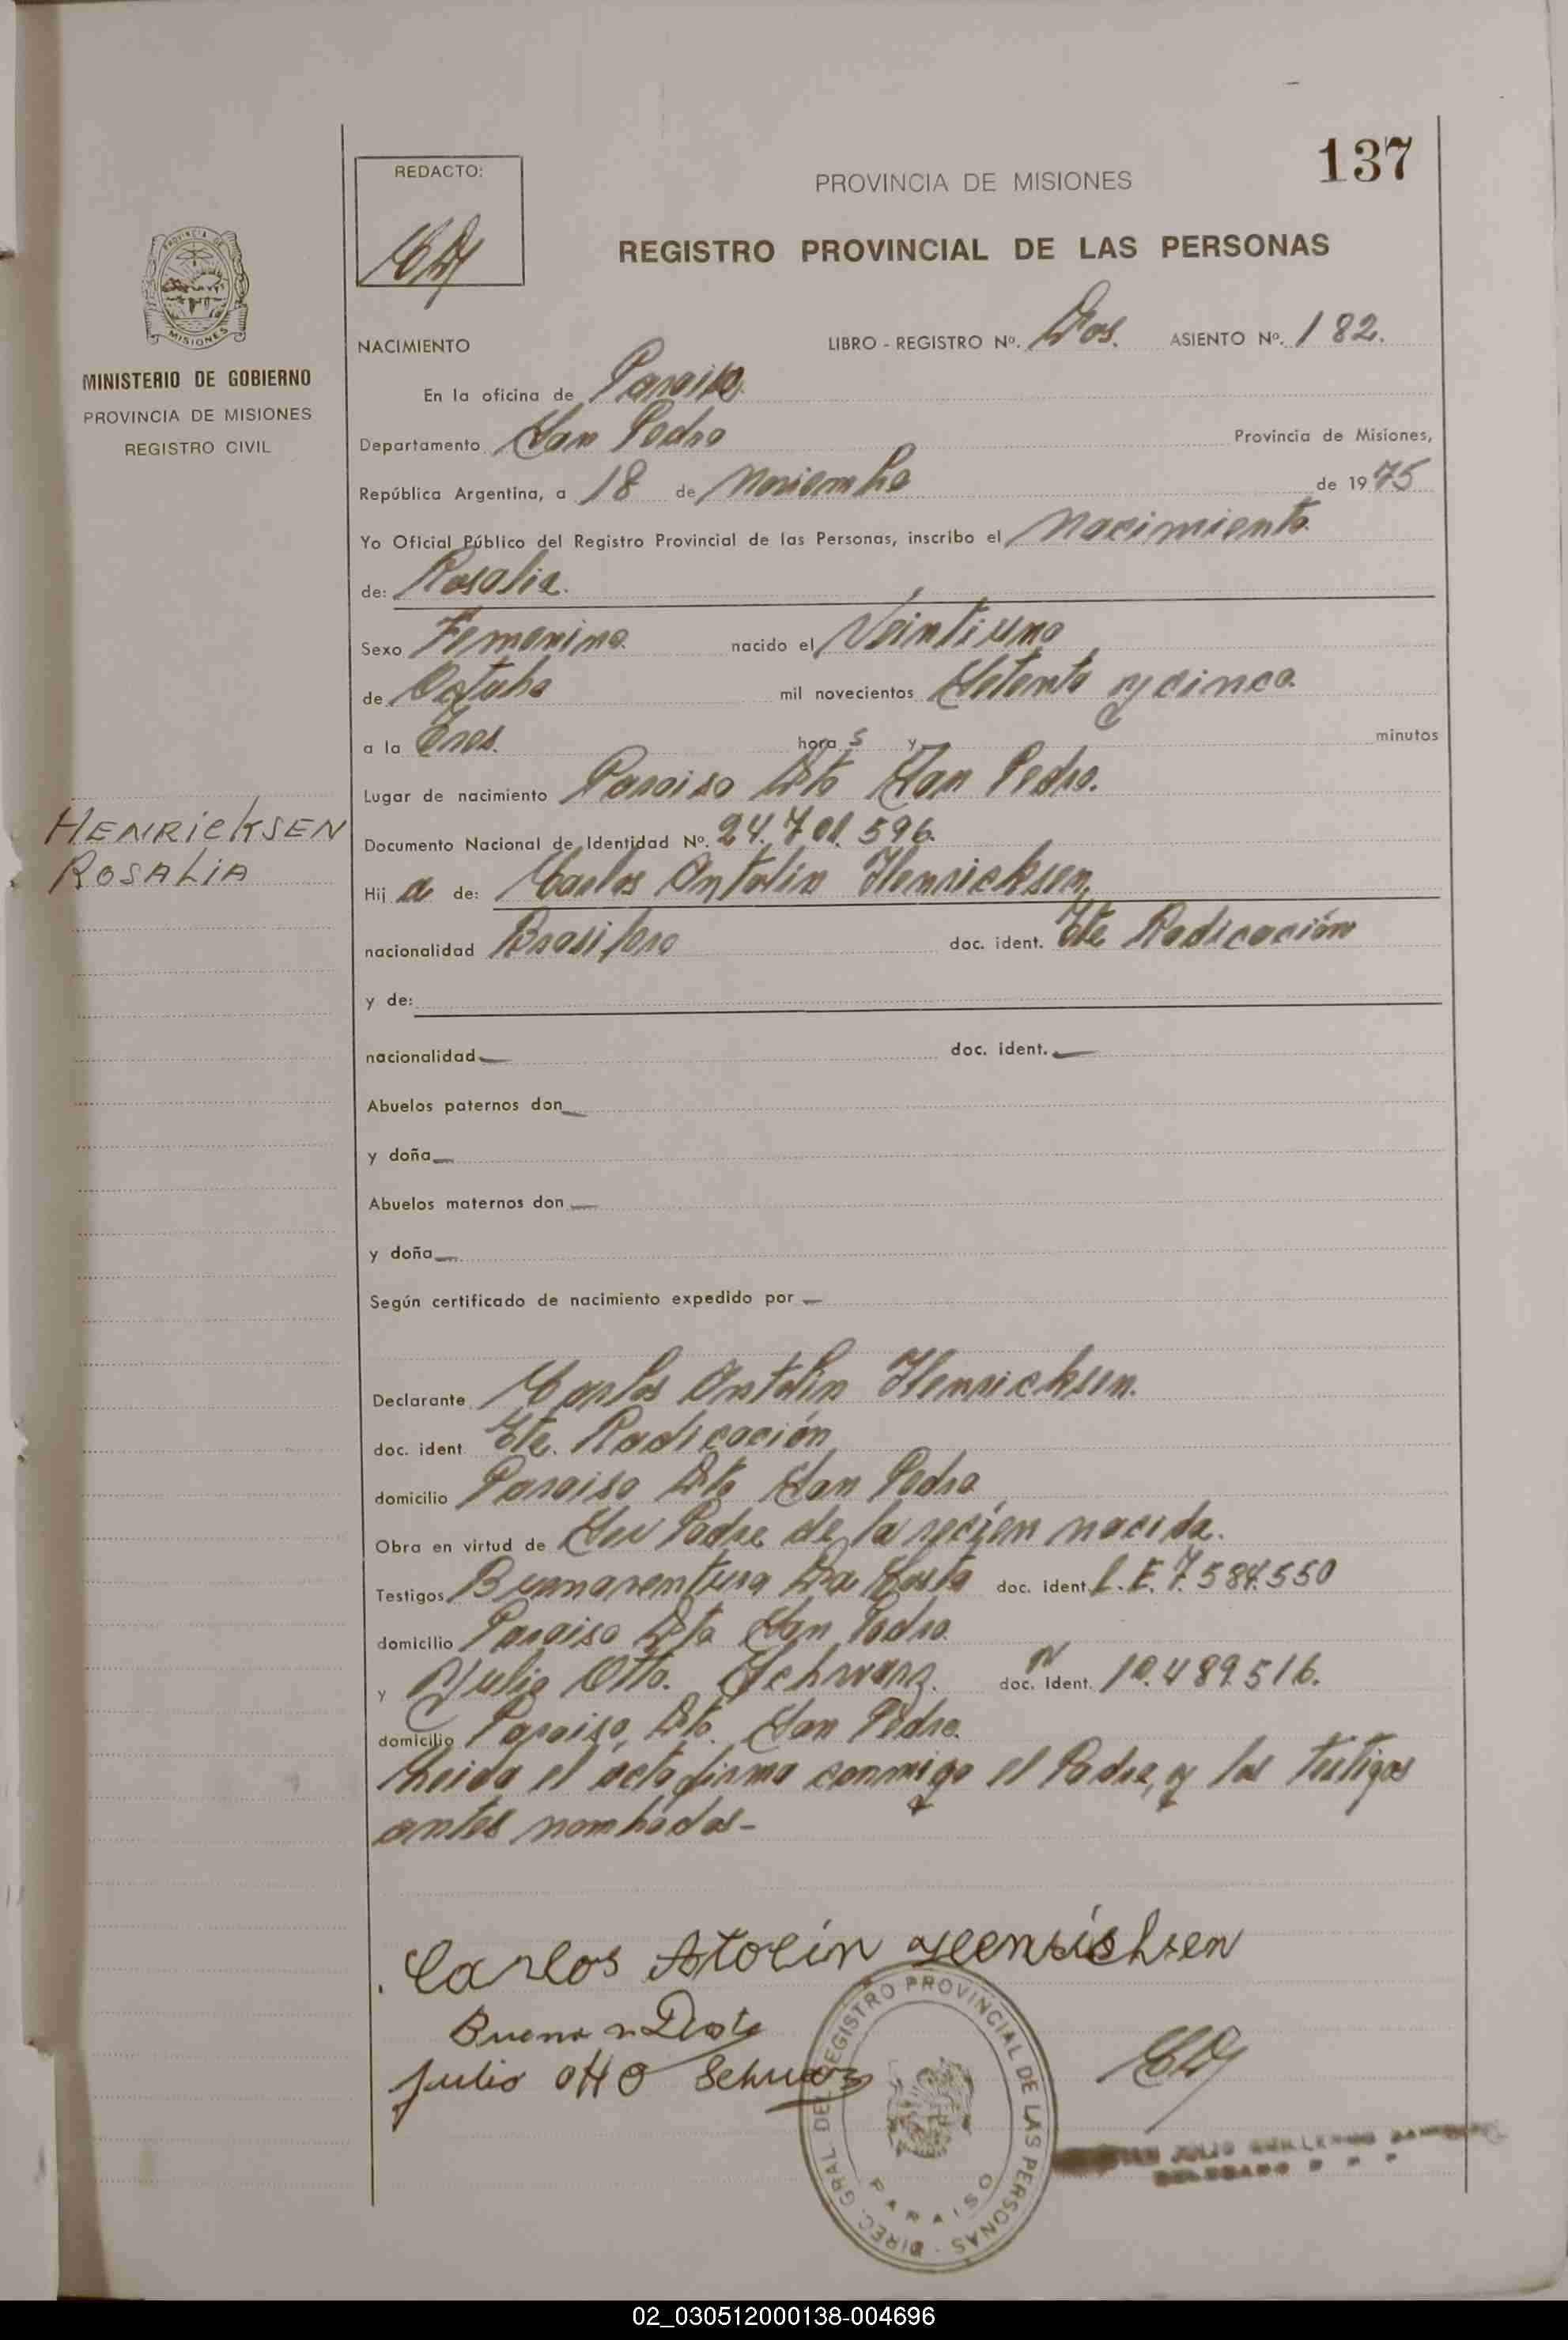 137
REDACTO:
PROVINCIA DE MISIONES
REGISTRO PROVINCIAL DE LAS PERSONAS
PROVINCIA DE
MISIONES
MINISTERIO DE GOBIERNO
PROVINCIA DE MISIONES
REGISTRO CIVIL
NACIMIENTO LIBRO - REGISTRO Nº. Dos. ASIENTO Nº. 182.
En la oficina de Paraiso.
Departamento San Pedro Provincia de Misiones,
República Argentina, a 18 de Noviembre de 1975
Yo Oficial Público del Registro Provincial de las Personas, inscribo el Nacimiento
de: Rosalia.
Sexo Femenino nacido el Veintiuno
de Octubre mil novecientos Setenta y cinco
a la Tres. hora s y minutos
Lugar de nacimiento Paraiso Dto San Pedro.
HENRICKSEN
ROSALIA
Documento Nacional de Identidad Nº. 24.701.596.
Hij a de: Carlos Antolín Henricksen,
nacionalidad Brasilero doc. ident. Radicación
y de:
nacionalidad — doc. ident. —
Abuelos paternos don —
y doña —
Abuelos maternos don —
y doña —
Según certificado de nacimiento expedido por —
Declarante Carlos Antolín Henrichsen.
doc. ident. Radicación
domicilio Paraiso Dto San Pedro
Obra en virtud de Ser Padre de la recien nacida.
Testigos Buenaventura Da Costa doc. ident. L.E. 7.584.550
domicilio Paraiso Dto San Pedro
y Julio Otto. Schwarz. doc. ident. 10.489.516.
domicilio Paraiso, Dto. San Pedro.
Leida el acta firma conmigo el Padre, y los testigos
antes nombrados-
Carlos Atolín Henrichsen
Julio Otto Schwarz
DIREC. GRAL. DEL REGISTRO PROVINCIAL DE LAS PERSONAS -
PARAISO
JULIO GUILLERMO
DELEGADO
02_030512000138-004696